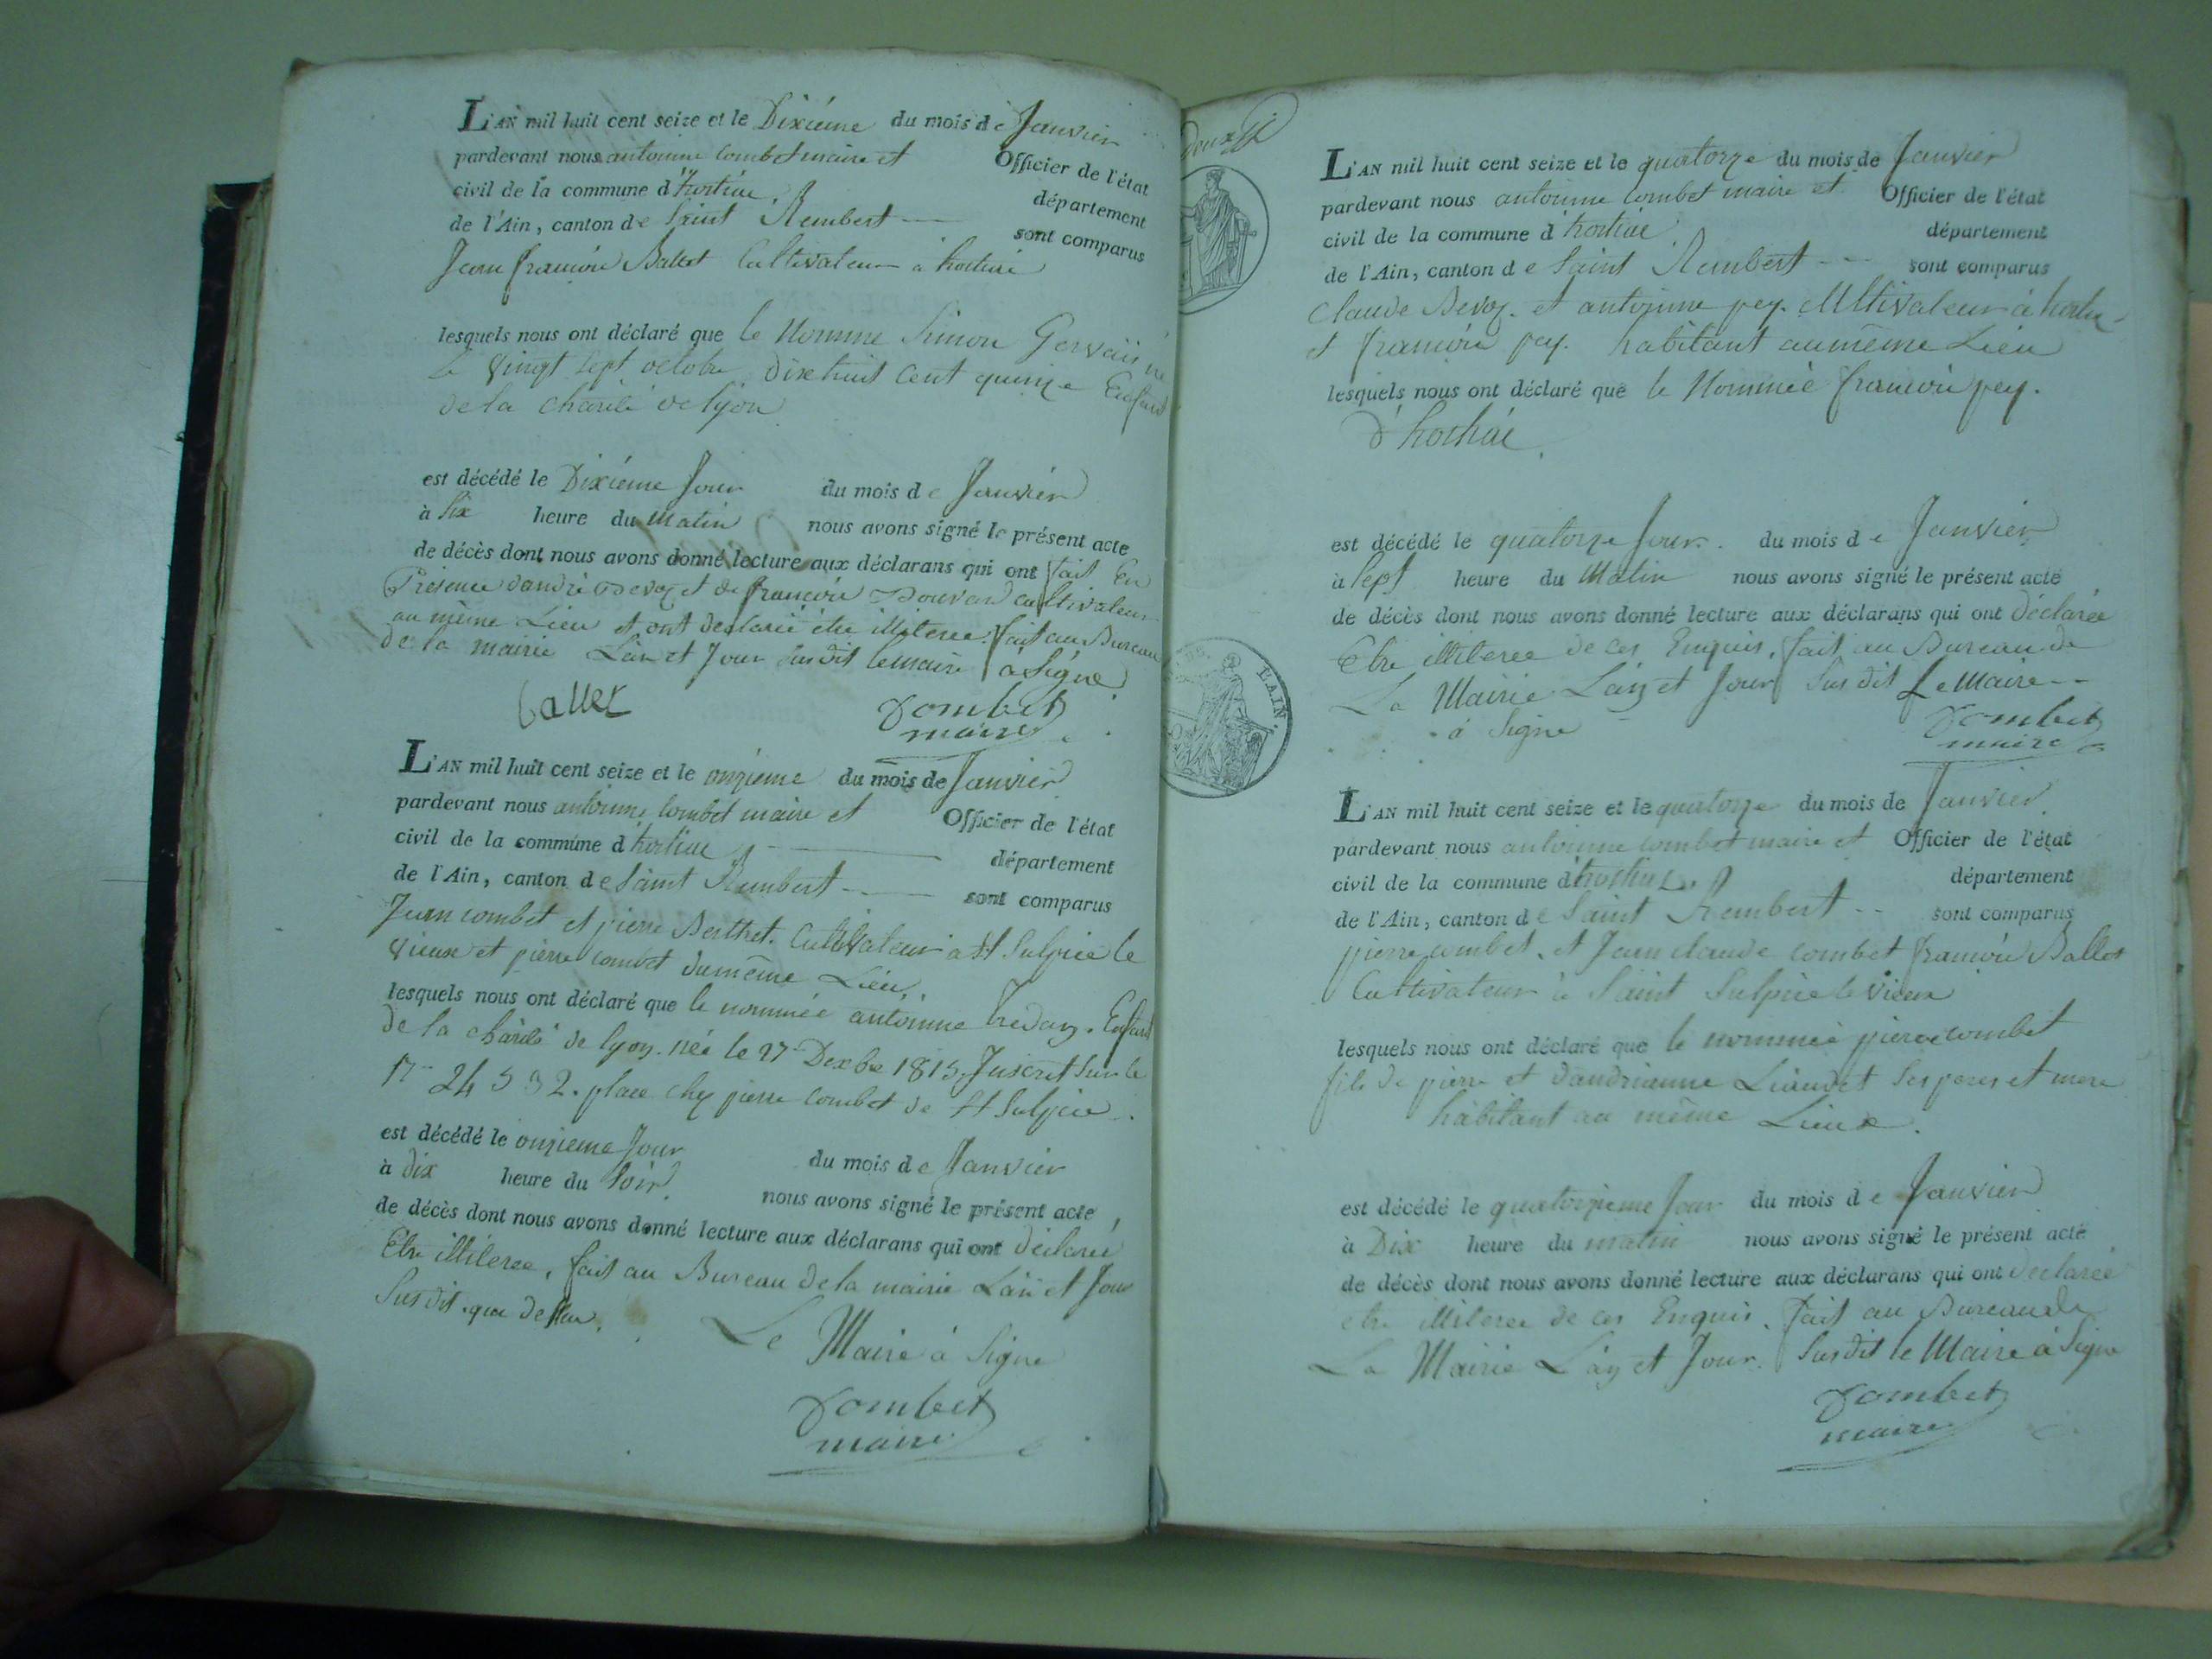 L'AN mil huit cent seize et le Dixiéme du mois de Janvier
pardevant nous antoinne combet maire et Officier de l'état
civil de la commune d'hostiaz département
de l'Ain, canton de Saint Rembert sont comparus
Jean françois Ballet Cultivateur à hostiaz
lesquels nous ont déclaré que le Nommé Simon Gervais né
le Vingt sept octobre dixhuit cent quinze Enfant
de la charité de lyon
est décédé le Dixiéme Jour du mois de Janvier
à Six heure du Matin nous avons signé le présent acte
de décès dont nous avons donné lecture aux déclarans qui ont fait En
Présence dandré Devoz et de françois cultivateur
au même Lieu et ont declarié être illiteree fait au Bureau
de la mairie Lan et Jour susdit le maire à Signé
ballet Combet
maire
L'AN mil huit cent seize et le onzieme du mois de Janvier
pardevant nous antoinne combet maire et Officier de l'état
civil de la commune d'hostiaz département
de l'Ain, canton de Saint Rembert sont comparus
Jean combet et pierre Berthet Cultivateur a St Sulpice le
Vieux et pierre combet dumême Lieu
lesquels nous ont déclaré que le nommée antoinne Enfant
de la charité de lyon née le 27 Dexbre 1815 Inscrit sur le
place chez pierre combet de St Sulpice
est décédé le onzieme Jour du mois de Janvier
à dix heure du Soir nous avons signé le présent acte
de décès dont nous avons donné lecture aux déclarans qui ont déclaré
Etre illiteree, fait au Bureau de la mairie Lan et Jour
Susdit que dessu
Le Maire à Signe
Combet
maire
deux
L'AN mil huit cent seize et le quatorze du mois de Janvier
pardevant nous antoinne combet maire et Officier de l'état
civil de la commune d'hostiaz département
de l'Ain, canton de Saint Rembert sont comparus
Claude Devoz et antoinne pey Cultivateur à hostiaz
et françois pey habitant aumême Lieu
lesquels nous ont déclaré que le Nommée françois pey
d'hostiaz
est décédé le quatorze Jour du mois de Janvier
à Sept heure du Matin nous avons signé le présent acte
de décès dont nous avons donné lecture aux déclarans qui ont déclarée
Etre illiteree de ces Enquis, fait au Bureau de
La Mairie Lan et Jour Susdit Le Maire
à Signe Combet
maire
L'AIN.
L'AN mil huit cent seize et le quatorze du mois de Janvier
pardevant nous antoinne combet maire et Officier de l'état
civil de la commune d'hostiaz département
de l'Ain, canton de Saint Rembert sont comparus
pierre combet et Jean claude combet françois Ballet
Cultivateur à Saint Sulpice le Vieux
lesquels nous ont déclaré que le nommée pierre combet
fils de pierre et dandrianne Liaudet ses peres et mere
habitant au même Lieux
est décédé le quatorzieme Jour du mois de Janvier
à Dix heure du matin nous avons signé le présent acte
de décès dont nous avons donné lecture aux déclarans qui ont declarée
etre illiteree de ces Enquis, fait au Bureau de
La Mairie Lan et Jour Susdit le Maire à Signe
Combet
maire